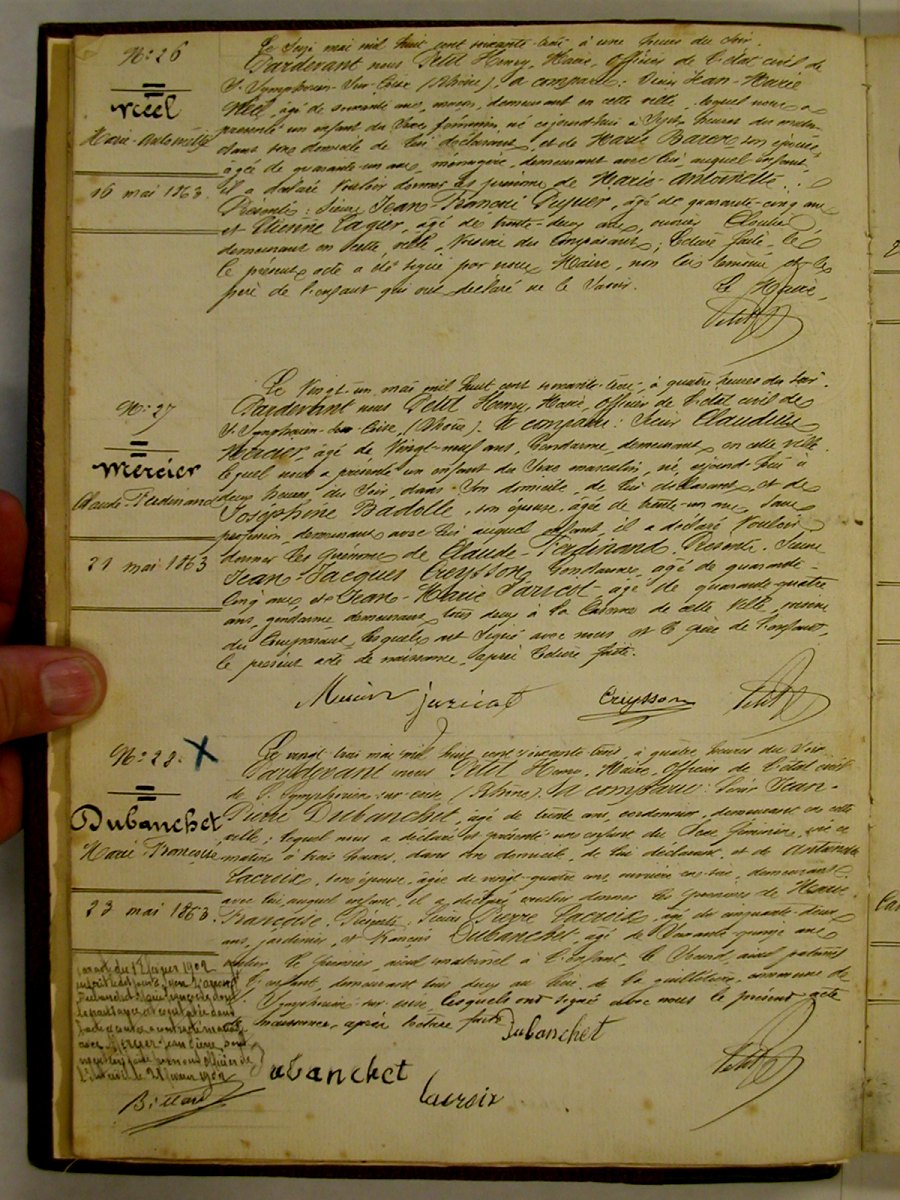 N° 26
Viel
Marie-Antoinette
16 mai 1863.
Le Seize mai mil huit cent soixante-trois à une heure du soir.
Pardevant nous Petit Henry, Maire, officier de l'état civil de
St Symphorien-sur-Coise (Rhône), a comparu: Sieur Jean-Marie
Viel, âgé de soixante ans, demeurant en cette ville, lequel nous a
présenté un enfant du Sexe féminin, né cejourd'hui à Sept heures du matin,
dans son domicile de lui déclarant, et de Marie Barer son épouse,
âgée de quarante-un ans, ménagère, demeurant avec lui, auquel enfant
il a déclaré vouloir donner les prénoms de Marie-Antoinette.
Présents: Sieurs Jean François âgé de quarante-cinq ans
et Etienne âgé de trente-deux ans, ouvrier
demeurant en cette ville, voisins du Comparant; lecture faite,
le présent acte a été signé par nous Maire, non les témoins et le
père de l'enfant qui ont déclaré ne le savoir. Le Maire,
Petit
N° 27
Mercier
Claude-Ferdinand
21 mai 1863
Le Vingt-un mai mil huit cent soixante-trois, à quatre heures du soir.
Pardevant nous Petit Henry, Maire, officier de l'état civil de
St Symphorien-sur-Coise, (Rhône). a comparu: Sieur Claudius
Mercier, âgé de Vingt-neuf ans, Gendarme, demeurant en cette ville
lequel nous a présenté un enfant du Sexe masculin, né, cejourd'hui à
deux heures du Soir, dans Son domicile, de lui déclarant, et de
Joséphine Badolle, son épouse, âgée de trente-un ans, Sans
profession, demeurant avec lui auquel enfant il a déclaré vouloir
donner les prénoms de Claude-Ferdinand. Présents: Sieurs
Jean-Jacques Creysson, Gendarme, âgé de quarante-
cinq ans et Jean-Marie Juricot, âgé de quarante-quatre
ans, gendarme demeurant tous deux à la Caserne de cette ville, voisins
du Comparant, lesquels ont signé avec nous et le père de l'enfant,
le présent acte de naissance, après lecture faite.
Mercier juricot Creysson Petit
N° 28. X
Dubanchet
Marie Françoise
23 mai 1863
Le vingt trois mai mil huit cent soixante trois, à quatre heures du Soir
Pardevant nous Petit Henry, Maire, Officier de l'état civil
de St Symphorien-sur-Coise, (Rhône). a comparu: Sieur Jean-
Pierre Dubanchet, âgé de trente ans, cordonnier, demeurant en cette
ville; lequel nous a déclaré et présenté un enfant du Sexe féminin, né ce
matin à trois heures, dans son domicile, de lui déclarant, et de Antoinette
Lacroix, son épouse, âgée de vingt-quatre ans, ouvrière en soie, demeurant
avec lui, auquel enfant, il a déclaré vouloir donner les prénoms de Marie
Françoise. Présents: Sieurs Pierre Lacroix, âgé de cinquante-deux
ans, jardinier, et François Dubanchet, âgé de Soixante-quinze ans
le premier, aïeul maternel à l'enfant, le Second, aïeul paternel
à l'enfant, demeurant tous deux au lieu de la Guilletière, commune de
St Symphorien-sur-Coise, lesquels ont signé avec nous le présent acte
de naissance, après lecture faite
Dubanchet
Dubanchet
Lacroix
Petit
avec Mercier Jean Pierre
Billard